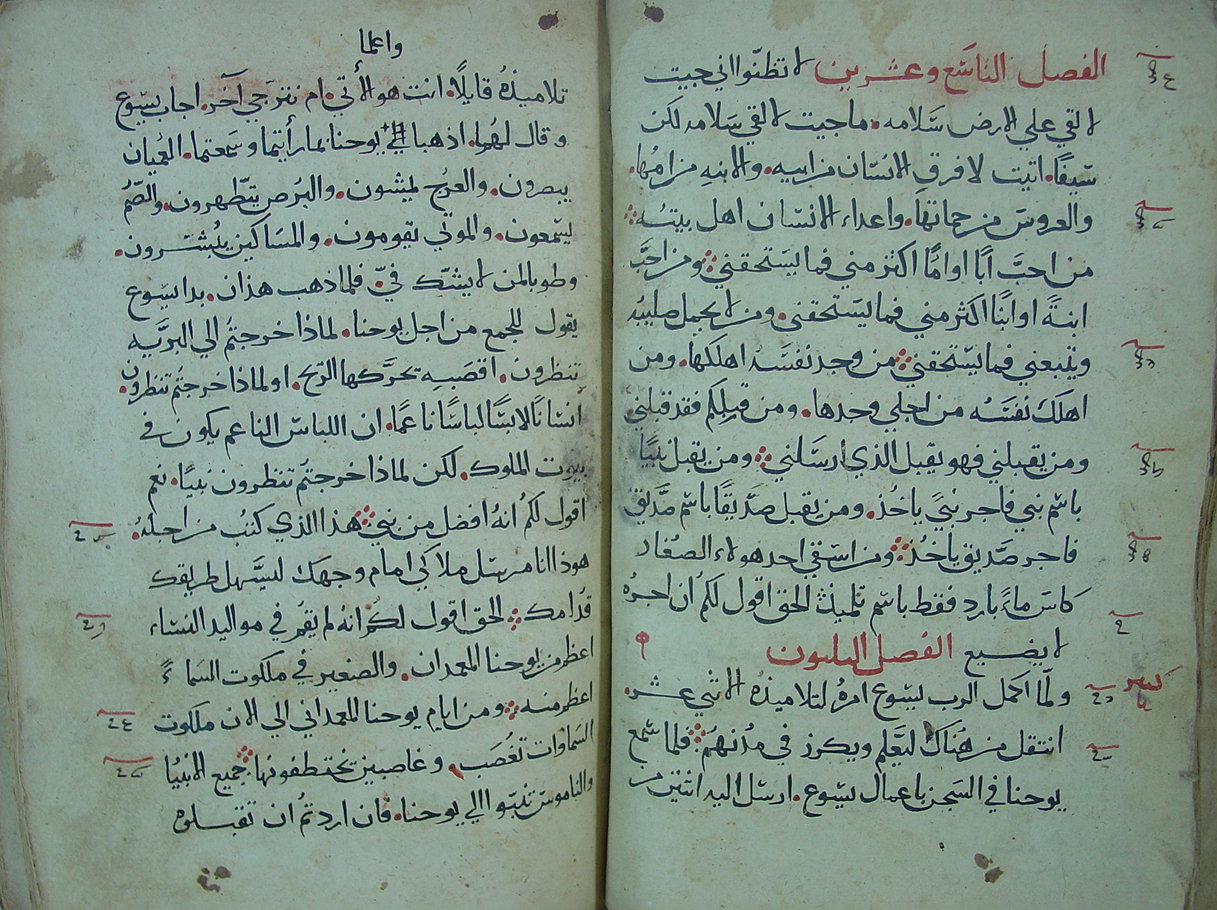 الفصل التاسع وعشرين لا تظنوا اني جيت
لالقي علي الارض سَلامه. ماجيت لالقي سَلامه لكن
سَيفًا. اتيت لافرق الانسَان من ابيه. والابنهِ من امُها.
والعروسَ من حماتها. واعداء الانسَان اهل بيتهُ
من احبَّ ابًا اوامًّا اكثر مني فما يسَتحقني ومن احبَّ
ابنهً اوابنًا اكثر مني فما يسَتحقني. ومن لا يحمل صليبهُ
ويتبعني فما يسَتحقني من وجد نفسَهُ اهلكها. ومن
اهلك نفسَهُ من اجلي وجدها. ومن قبلِكم فقد قبلني
ومن يقبلني فهو يقبل الذي ارسَلني ومن يقبل نبيًا
باسَم نبي فاجر نبيً ياخُذ. ومن يقبل صدّيقًا باسَم صدَّيق
فاجر صدَّيق ياخُذ ومن اسَقي احد هولاء الصغار
كاسَ ماءً بارد فقط باسَم تلميذ الحق اقول لكم ان اجرهُ
لا يضيع الفصل الثلثون
ولّما اكمل الرب يسَوع امرهُ لتلاميذهُ الاثني عشر.
انتقل من هُناك ليعَّلم ويكرز في مُدنهُم فلما سَمع
يوحنا في السَجن باعمال يسَوع. ارسَل اليه اثنين من
واعلما
تلاميذهُ قايلًا. انت هو الأتي. ام نترَجي آخر. اجاب يسَوع
وقال لهُما. اذهبا الي يوحنا بما رأيتما وسَمعتما. العُميان
يبصرون. والعرُج يمشون. والبُرص يتّطهرون. والصّمُ
يسَمعون. والموتي يقومون. والمسَاكين يبُشرون.
وطوبا لمن لا يشكّ فيّ. فلما ذهب هذان. بدا يسَوع
يقول للجمع من اجل يوحنا. لماذا خرجتُم الي البرَّيه
تنظرون. اقصَبه تحرَّكها الريّح. او لماذا خرجتُم تنظرون.
أنسَانًا لابسًَا لباسًَا ناعمًا. ان اللباسَ الناعم يكون في
بيوت الملوك. لكن لماذا خرجتُم تنظرون نبيًا. نعم
اقول لكُم انهُ افضل من نبي هذا الذي كتبُ من اجلهُ.
هوذا انا مرسَل ملاكي امام وجهك ليسَّهل طريقك
قدامك الحق اقول لكم انه لم يقُم في مواليد النسَاء
اعظم من يوحنا المعمدان. والصغير في ملكوت السَماءً
اعظم منه ومن ايام يوحنا المعمداني الي الان ملكوت
السَماوات تغُصَب. وغاصبين يختطفونها جميع الانبيُا
والناموسَ تنبّوا الي يوحنا. فان اردتُم ان تقبلوه